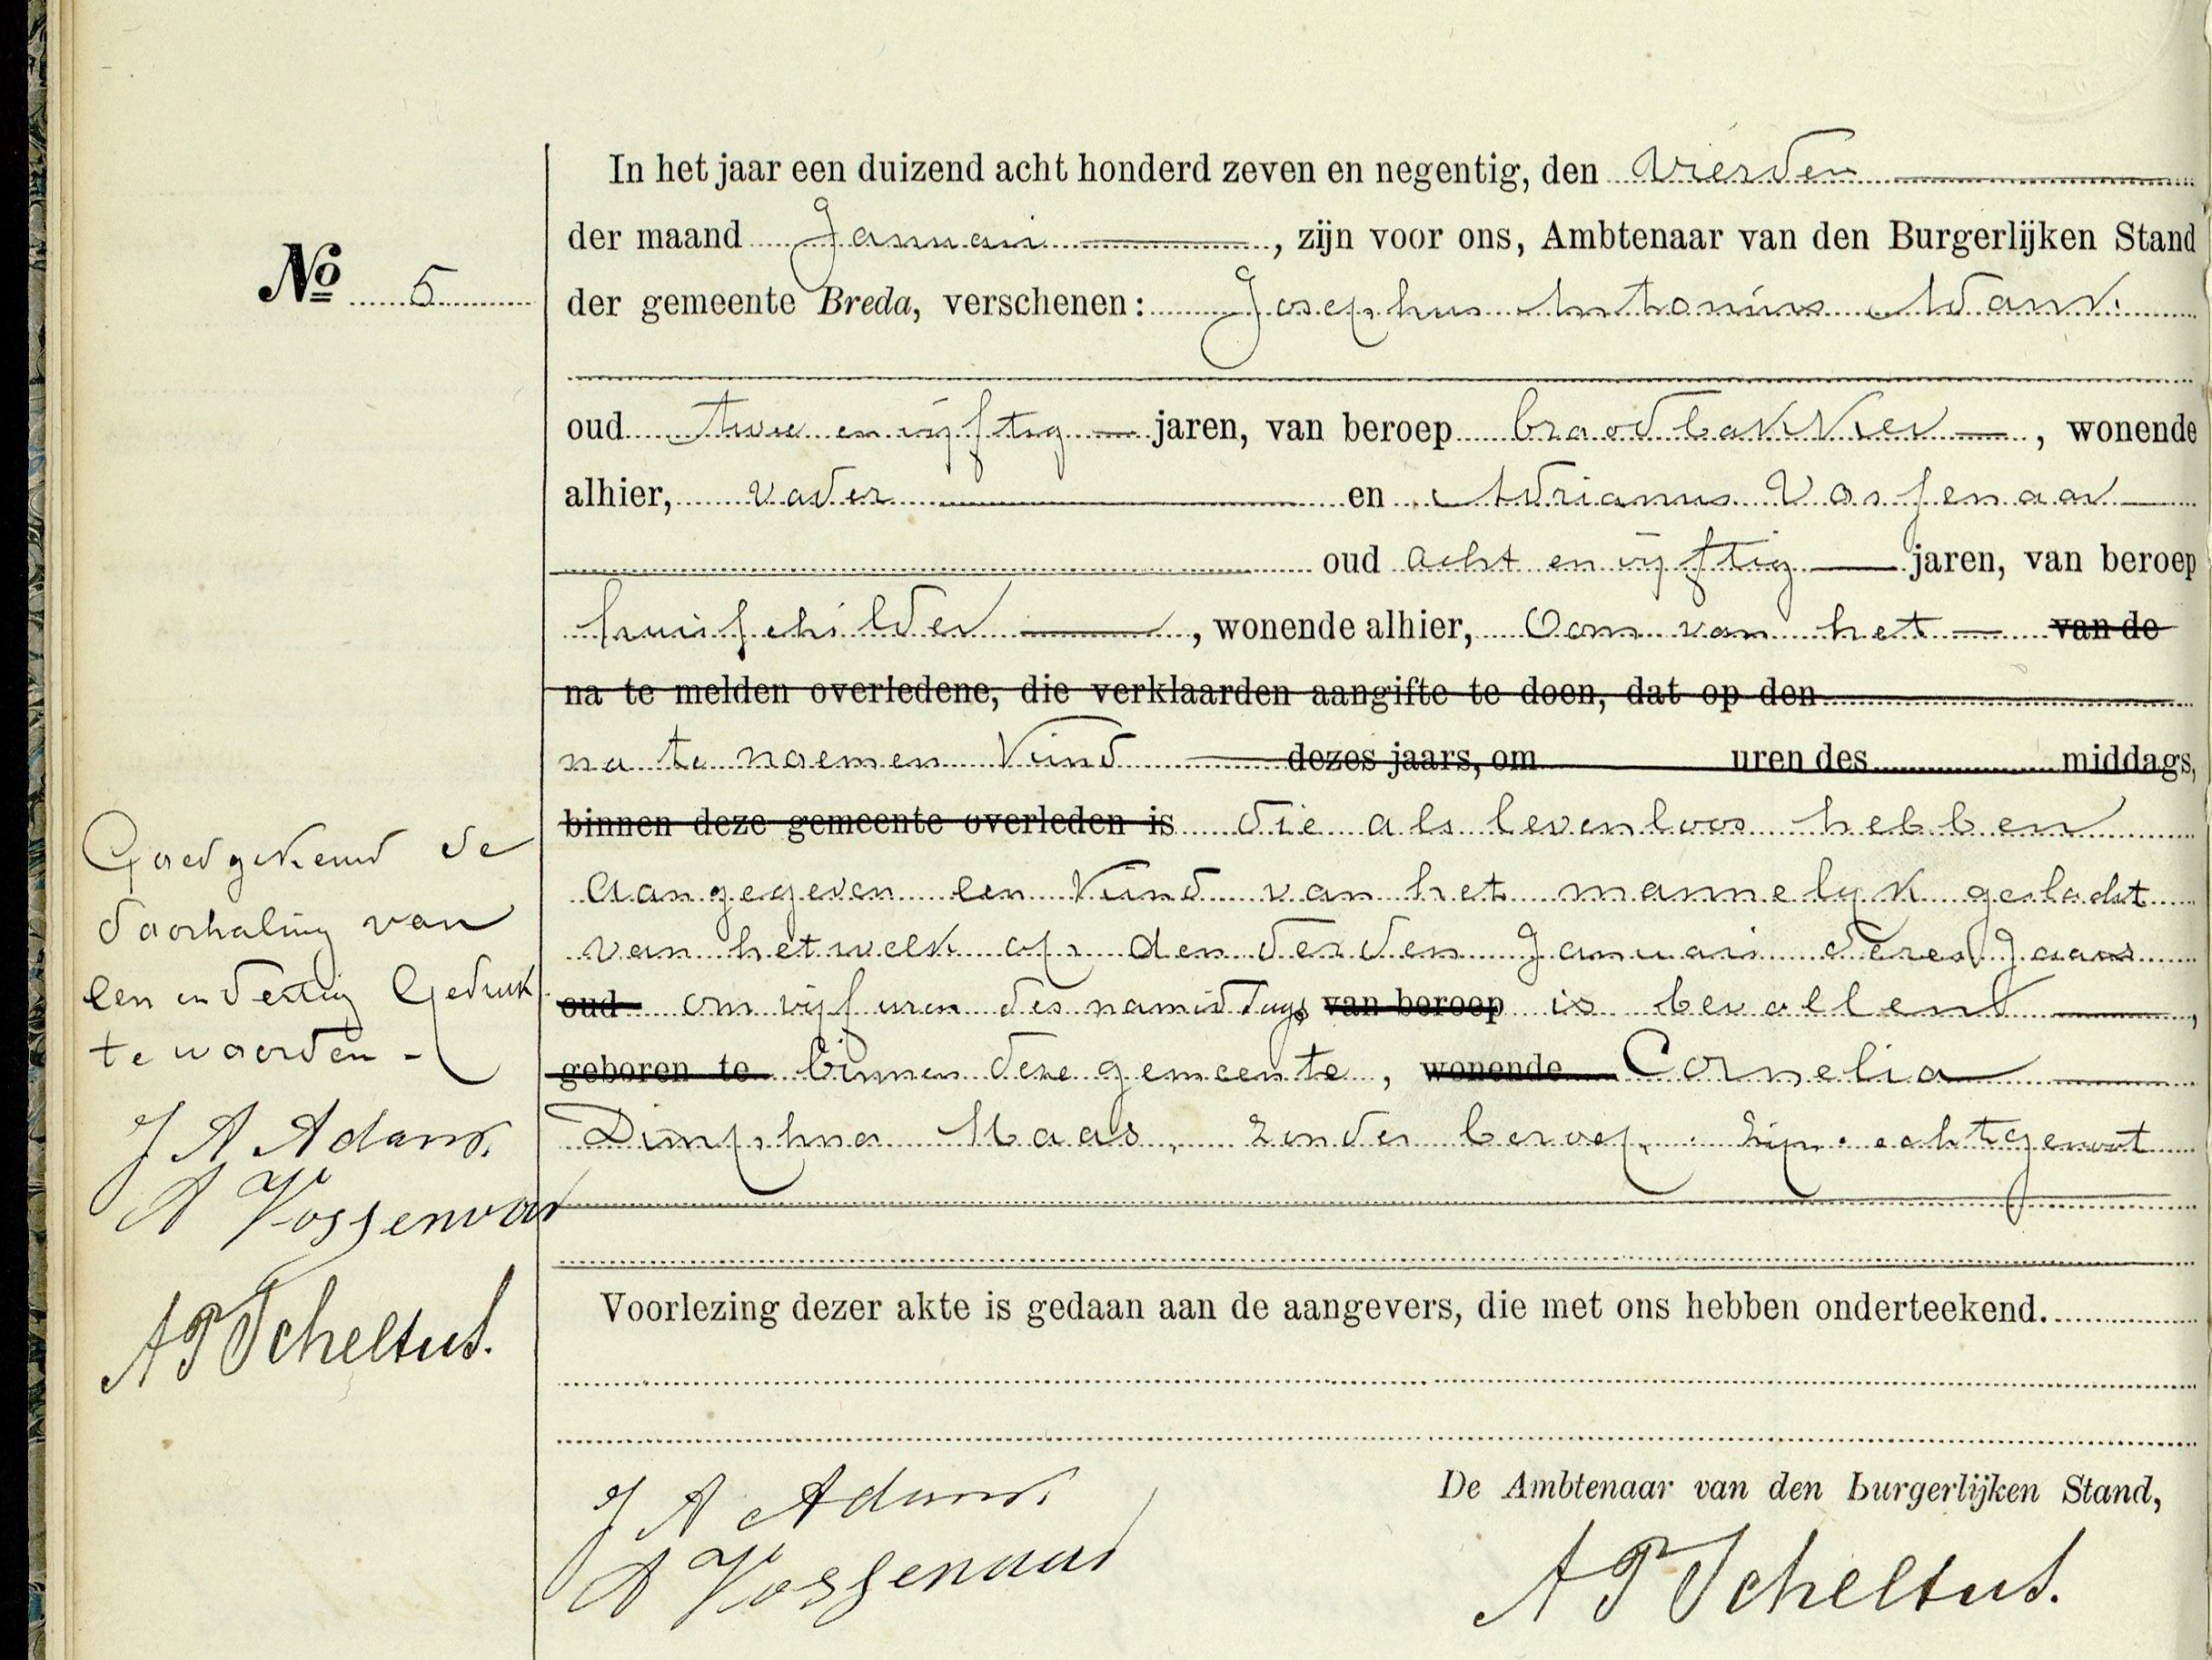 In het jaar een duizend acht honderd zeven en negentig, den vierden
der maand Januari, zijn voor ons, Ambtenaar van den Burgerlijken Stand
No 5
der gemeente Breda, verschenen: Josephus Antonius Adank.
oud twee en vijftig jaren, van beroep broodbakker, wonende
alhier, vader en Adrianus Vossenaar
oud acht en vijftig jaren, van beroep
huisschilder, wonende alhier, Oom van het van de
na te melden overledene, die verklaarden aangifte te doen, dat op den
na te noemen kind dezes jaars, om uren des middags,
binnen deze gemeente overleden is die als levenloos hebben
aangegeven een kind van het mannelijk geslacht
van hetwelk op den derden Januari dezes jaars
oud om vijf uren des namiddags van beroep is bevallen,
geboren te binnen deze gemeente, wonende Cornelia
Dimphna Maas, zonder beroep, zijne echtgenoot
Goedgekeurd de
doorhaling van
een en dertig gedruk
te woorden -
J A Adank.
A Vossenaar
A P Scheltus.
Voorlezing dezer akte is gedaan aan de aangevers, die met ons hebben onderteekend.
De Ambtenaar van den burgerlijken Stand,
J A Adank.
A Vossenaar
A P Scheltus.